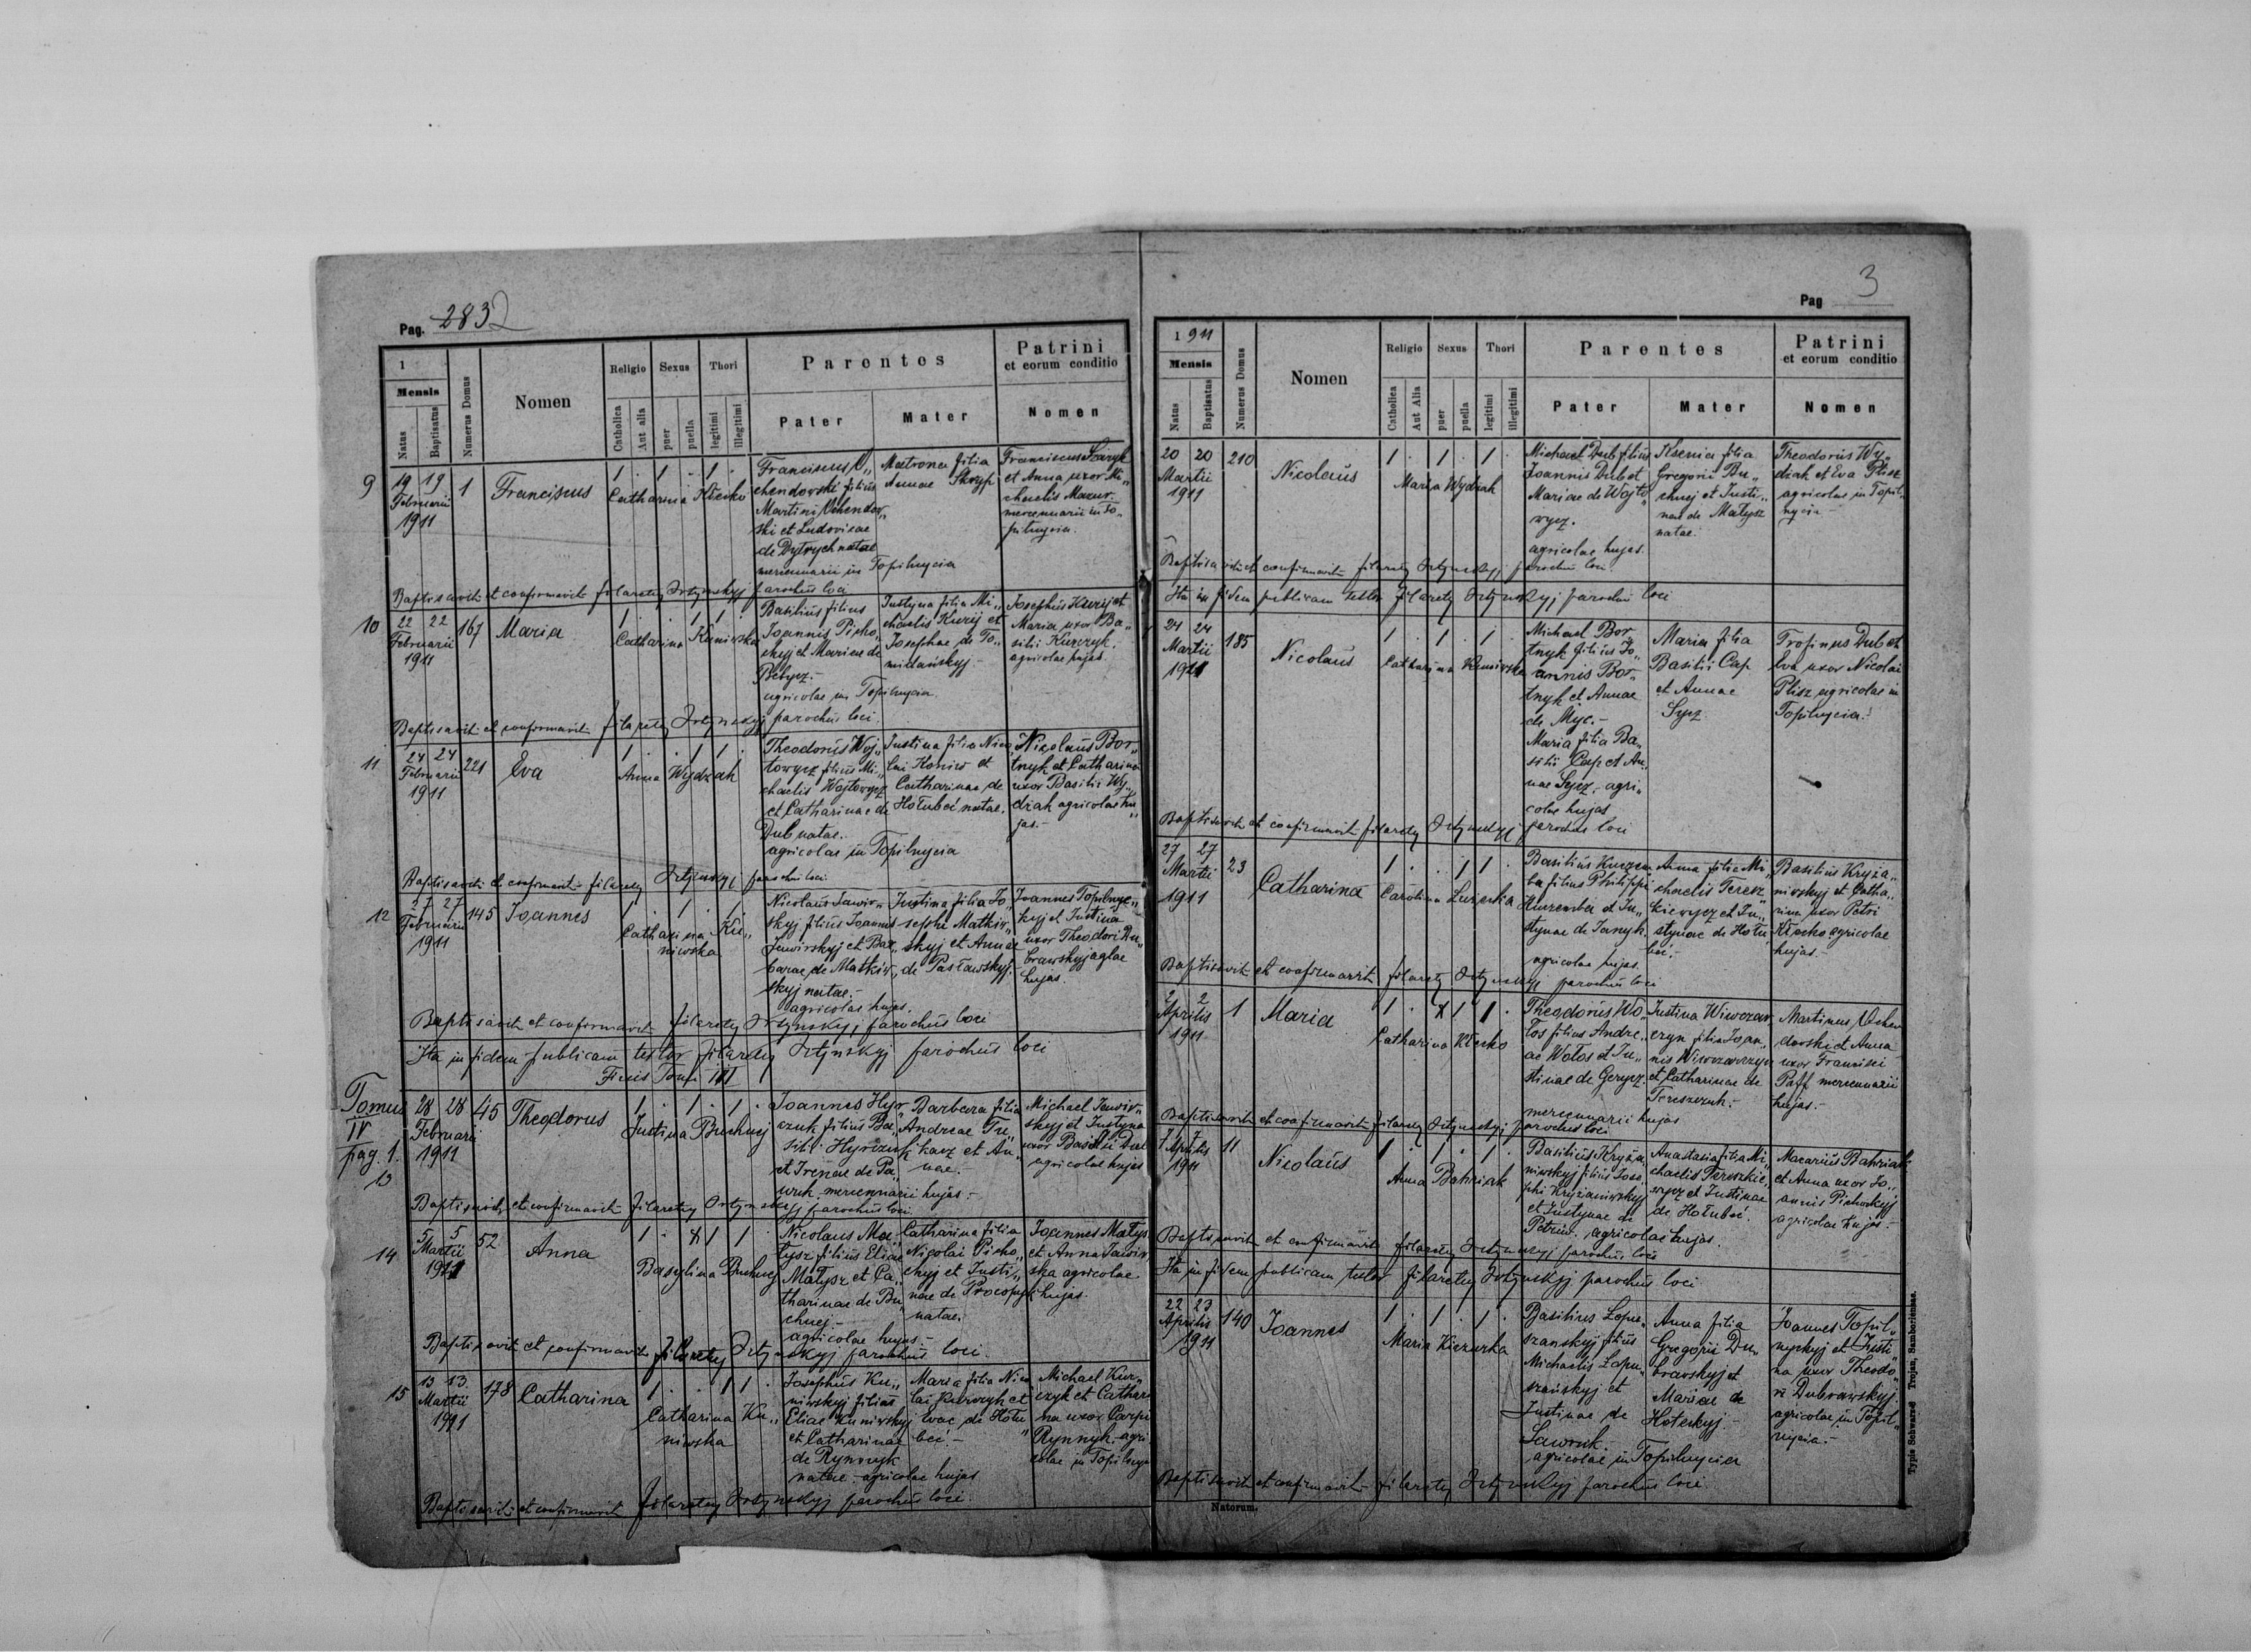 Pag. 283 2
1
Mensis
Natus
Baptisatus
Numerus Domus
Nomen
Religio
Catholica
Aut alia
Sexus
puer
puella
Thori
legitimi
illegitimi
Parentes
Pater
Mater
Patrini
et eorum conditio
Nomen
9
19 19
Februarii
1911
1
Franciscus
1 . 1 . 1 .
Catharina Klecko
Franciscus
chendowski filius
Martini
ski et Ludovicae
de Dytrych natae
mercenarii in Topilnycia
Matrona filia
Annae Skryp
Franciscus
et Anna uxor Mi„
chaelis Mazur
mercenarii in To„
pilnycia.
Baptisavit et confirmavit Filarety Ortynskyj parochus loci
10
22 22
Februarii
1911
167
Maria
1 . . 1 1 .
Catharina Kuniwska
Basilius filius
Joannis Picho„
ckyj et Mariae de
agricolae in Topilnycia.
Justyna filia Mi„
chaelis Kurij et
Josephae de To„
midańskyj.-
Josephus Kurij et
Maria uxor Ba„
silii Kurczyk.
agricolae hujas.
Baptisavit et confirmavit Filarety Ortynskyj parochus loci.
11
24 24
Februarii
1911
221
Eva
1 . . 1 1 .
Anna Wydzah
Theodorus Woj„
towycz filius Mi„
chaelis Wojtowycz
et Catharinae de
Dub natae.
agricolae in Topilnycia
Justina filia Nico„
lai Koniw et
Catharinae de
Hołubeć natae.
Nicolaus Bor„
tnyk et Catharina
uxor Basilii Wy„
dzah agricolae hu„
jas.-
Baptisavit et confirmavit Filarety Ortynskyj parochus loci
12
27 27
Februarii
1911
145
Joannes
1 . 1 . 1 .
Catharina Ku„
niwska
Nicolaus Jawiw„
skyj filius Joannis
Jawiwskyj et Bar„
barae de Matkiw„
skyj natae.-
agricolae hujas.
Justina filia Jo„
sephi Matkiw„
skyj et Annae
de Pasławskyj.
Joannes Topilnyc„
kyj et Justina
uxor Theodori Du„
brawskyj aglae
hujas.
Baptisavit et confirmavit Filarety Ortynskyj parochus loci
Ita in fidem publicam testor Filarety Ortynskyj parochus loci
Finis Tomi III
Tomus
IV
pag. 1.
13
28 28
Februarii
1911
45
Theodorus
1 . 1 . 1 .
Justina Buchnej
Joannes Hyr„
czuk filius Ba„
silii Hyrczuk
et Irenae de Pa„
wuk mercennarii hujas.-
Barbara filia
Andreae Tu„
kacz et An„
nae.
Michael Jawiw„
skyj et Justyna
uxor Basilii Dub
agricolae hujas
Baptisavit et confirmavit Filarety Ortynskyj parochus loci
14
5 5
Martii
1911
52
Anna
1 . X 1 1 .
Basylina Buchnej
Nicolaus Ma„
tysz filius Eliae
Matysz et Ca„
tharinae de Bu„
chnej.-
agricolae hujas.-
Catharina filia
Nicolai Picho„
ckyj et Justi„
nae de Procopyk
natae.
Joannes Matysz
et Anna Jawiw„
ska agricolae
hujas.
Baptisavit et confirmavit Filarety Ortynskyj parochus loci.
15
13 13.
Martii
1911
178
Catharina
1 . . 1 1 .
Catharina Ku„
niwska
Josephus Ku„
niwskyj filius
Eliae Kuniwskyj
et Catharinae
de Rynnyk
natae.- agricolae hujas
Maria filia Nico„
lai Kurczyk et
Evae de Hołu„
beć.-
Michael Kur„
czyk et Cathari„
na uxor Carpi
Rynnyk agri„
colae in Topilnycia
Baptisavit et confirmavit Filarety Ortynskyj parochus loci
Pag 3
1911
Mensis
Natus
Baptisatus
Numerus Domus
Nomen
Religio
Catholica
Aut Alia
Sexus
puer
puella
Thori
legitimi
illegitimi
Parentes
Pater
Mater
Patrini
et eorum conditio
Nomen
20 20
Martii
1911
210
Nicolaus
1 . 1 . 1 .
Maria Wydzah
Michael Dub filius
Joannis Dub et
Mariae de Wojto„
wycz.
agricolae hujas.
Ksenia filia
Gregorii Bu„
chnej et Justi„
nae de Matysz
natae.
Theodorus Wy„
dzah et Eva Plisz
agricolae in Topil„
nycia.-
Baptisavit et confirmavit Filarety Ortynskyj parochus loci.
Ita in fidem publicam testor Filarety Ortynskyj parochus loci
24 24
Martii
1911
185
Nicolaus
1 . 1 . 1 .
Catharina Kuniwska
Michael Bor„
tnyk filius Jo„
annis Bor„
tnyk et Annae
de Myc.-
Maria filia Ba„
silii Cap et An„
nae Sycz.- agri„
colae hujas
Maria filia
Basilii Cap
et Annae
Sycz.
Trofimus Dub et
Eva uxor Nicolai
Plisz agricolae in
Topilnycia.-
Baptisavit et confirmavit Filarety Ortynskyj parochus loci
27 27
Martii
1911
23
Catharina
1 . . 1 1 .
Carolina
Basilius Kuczem„
ba filius Philippi
Kuczemba et Ju„
stynae de Janyk.
agricolae hujas.
Anna filia Mi„
chaelis Teresz„
kiewycz et Ju„
stynae de Hołu„
beć.-
Basilius Kryża„
niwskyj et Catha„
rina uxor Petri
Klecko agricolae
hujas.-
Baptisavit et confirmavit Filarety Ortynskyj parochus loci
2 2
Aprilis
1911
1
Maria
1 . X 1 1 .
Catharina Klecko
Theodorus Wo„
łos filius Andre„
ae Wołos et Ju„
stinae de Gerycz.
mercennarii hujas
Justina Wiwczar„
czyn filia Joan„
nis Wiwczarczyn
et Catharinae de
Tereszczuk.-
Martinus
dowski et Anna
uxor Francisci
Paff mercennarii
hujas.-
Baptisavit et confirmavit Filarety Ortynskyj parochus loci
7 7
Aprilis
1911
11
Nicolaus
1 . 1 . 1 .
Anna Bahriak
Basilius Kryża„
niwskyj filius Jose„
phi Kryżaniwskyj
et Justynae de
Petriw. agricolae hujas.
Anastasia filia Mi„
chaelis Tereszkie„
wycz et Justinae
de Hołubeć.
Macarius Bahriak
et Anna uxor Jo„
annis Pichockyj
agricolae hujas.-
Baptisavit et confirmavit Filarety Ortynskyj parochus loci
Ita in fidem publicam testor Filarety Ortynskyj parochus loci
22 23
Aprilis
1911
140
Joannes
1 . 1 . 1 .
Maria Kiczurka
Basilius Lopu„
szanskyj filius
Michaelis Lopu„
szańskyj et
Justinae de
Ławruk.
agricolae in Topilnycia
Anna filia
Gregorii Du„
brawskyj et
Mariae de
Joannes Topil„
nyckyj et Justi„
na uxor Theodo„
ri Dubrawskyj
agricolae in Topil„
nycia.-
Baptisavit et confirmavit Filarety Ortynskyj parochus loci.
Natorum.
Typis Schwarz & Trojan, Samboriensae.